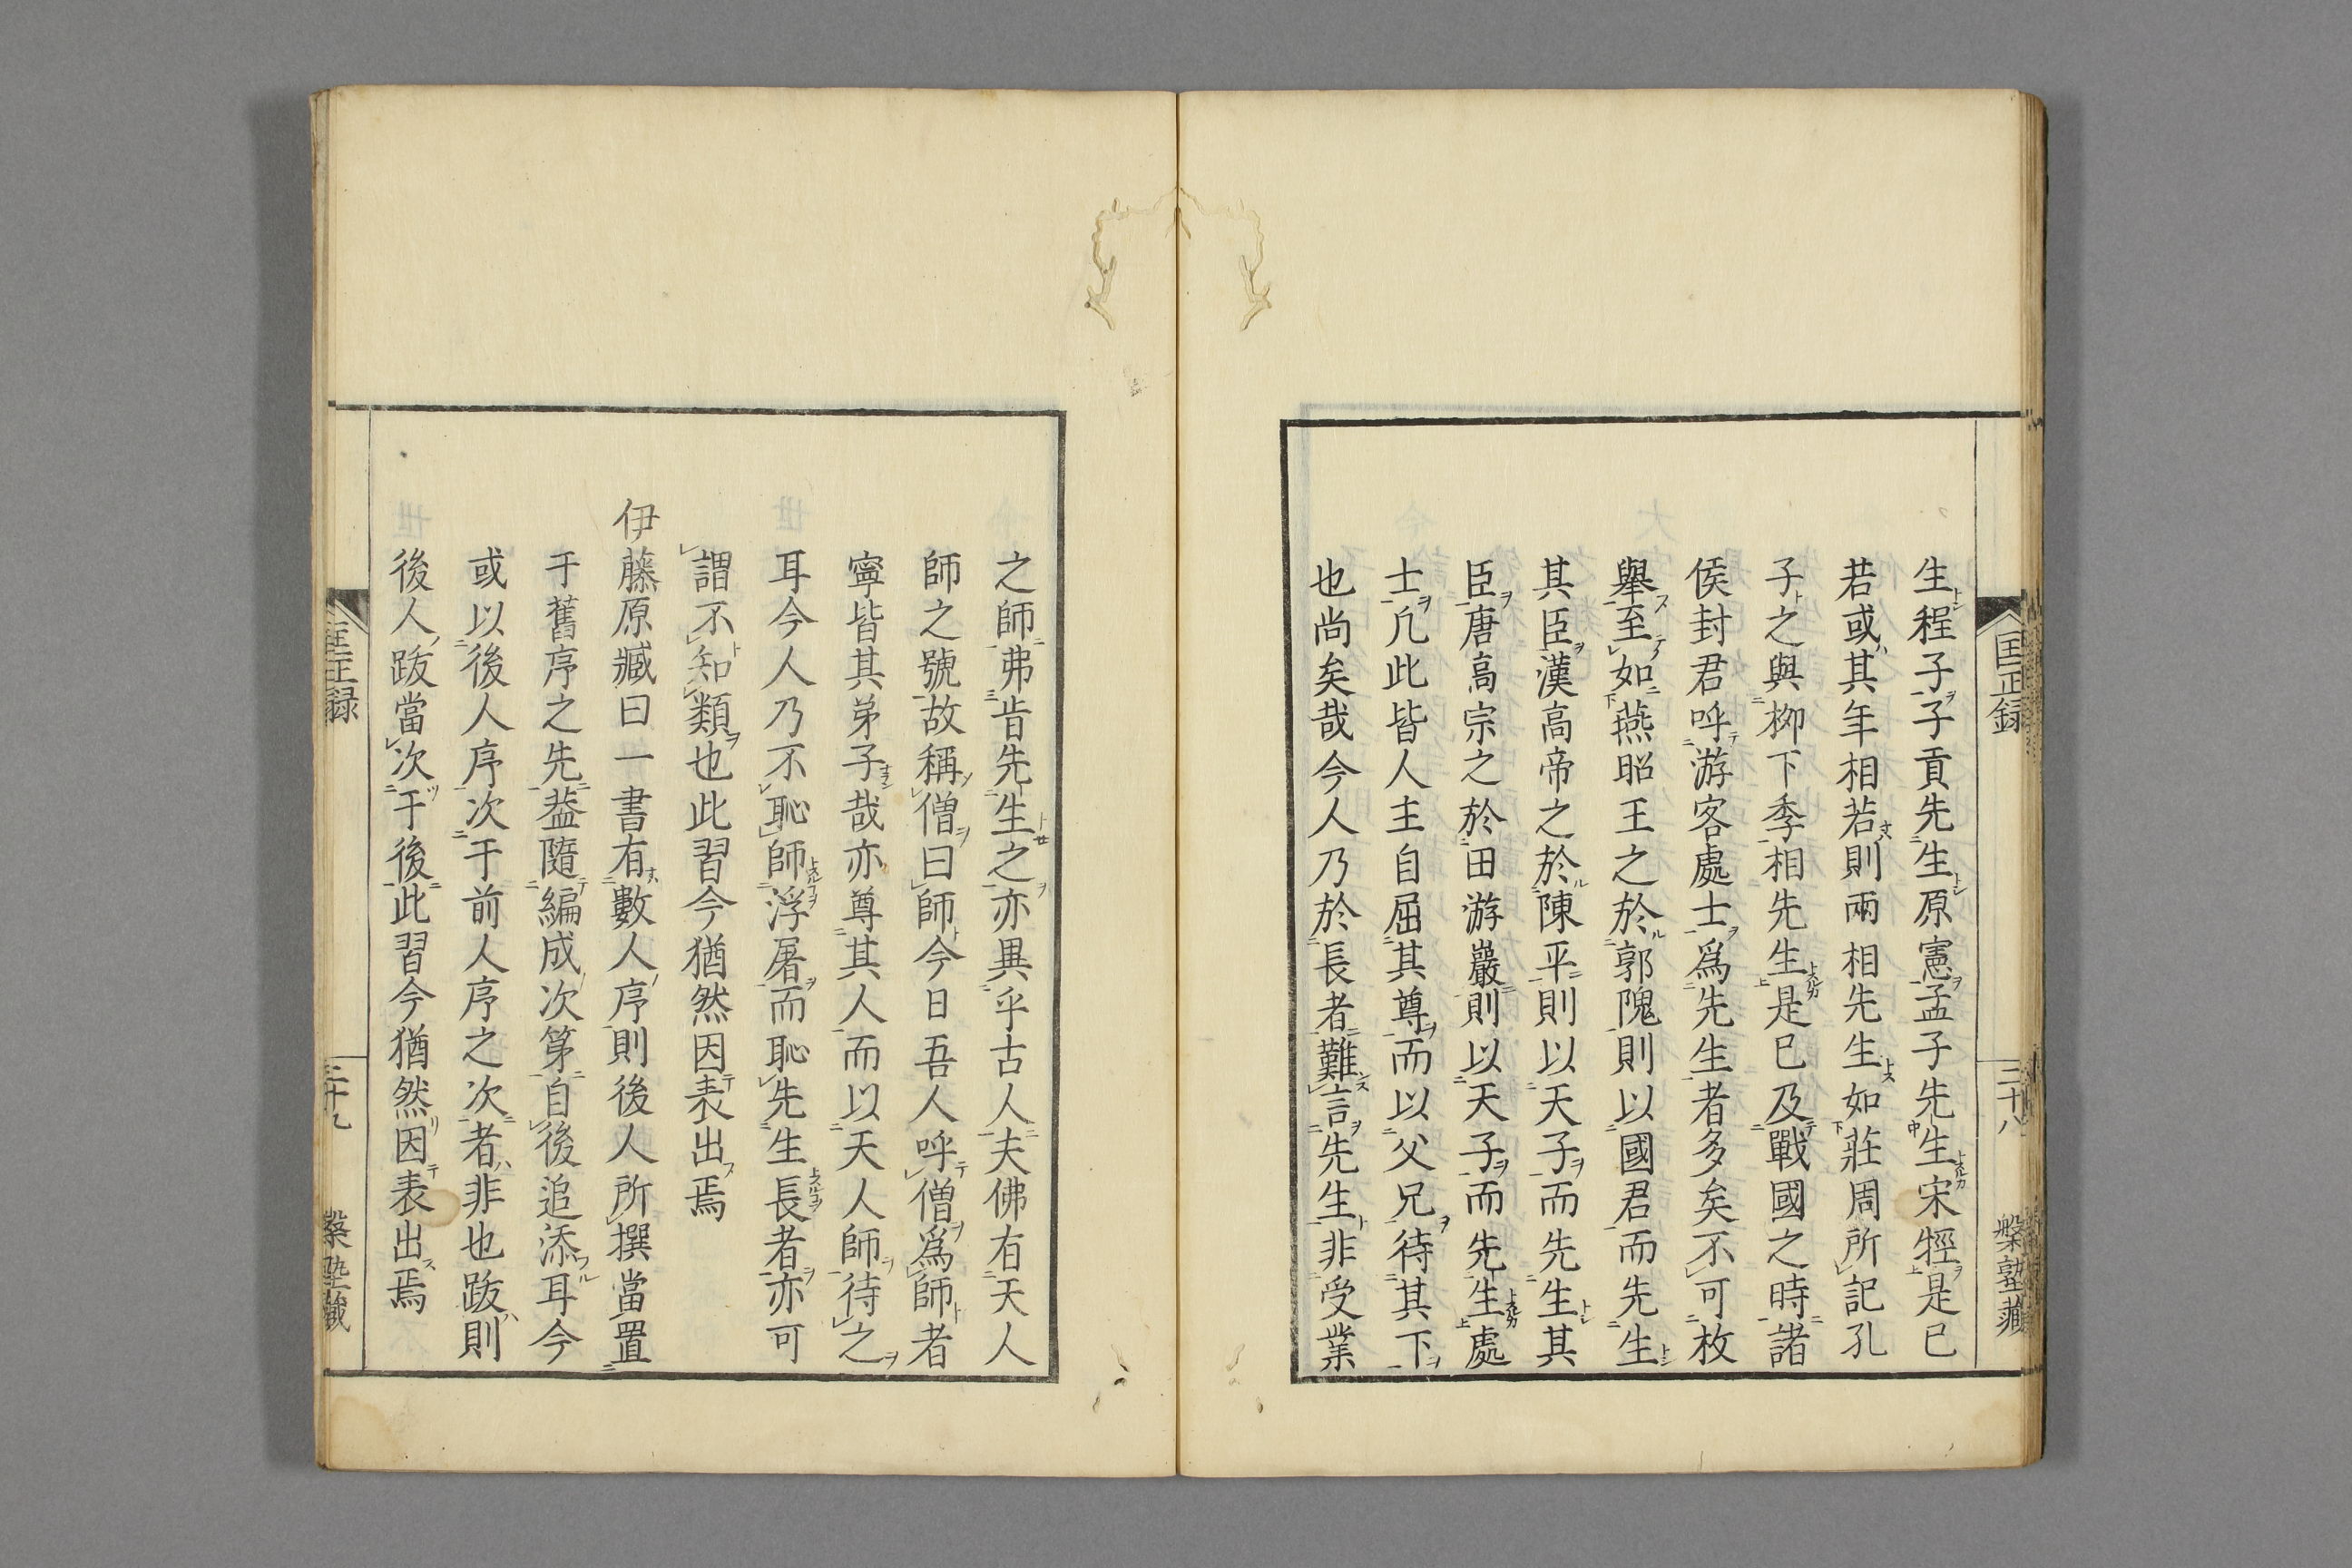 匡正録
三十八
槃塾藏
生程子子貢先生原憲孟子先生宋牼是已
若或其年相若則兩相先生如莊周所記孔
子之與柳下季相先生是已及戰國之時諸
侯封君呼游客處士爲先生者多矣不可枚
舉至如燕昭王之於郭隗則以國君而先生
其臣漢高帝之於陳平則以天子而先生其
臣唐高宗之於田游巖則以天子而先生處
士凢此皆人主自屈其尊而以父兄待其下
也尚矣哉今人乃於長者難言先生非受業
之師弗肯先生之亦異乎古人夫佛有天人
師之號故稱僧曰師今日吾人呼僧爲師者
寧皆其弟子哉亦尊其人而以天人師待之
耳今人乃不恥師浮屠而恥先生長者亦可
謂不知類也此習今猶然因表出焉
伊藤原臧曰一書有數人序則後人所撰當置
于舊序之先葢隨編成次第自後追添耳今
或以後人序次于前人序之次者非也跋則
後人跋當次于後此習今猶然因表出焉
匡正録
三十九
槃塾藏